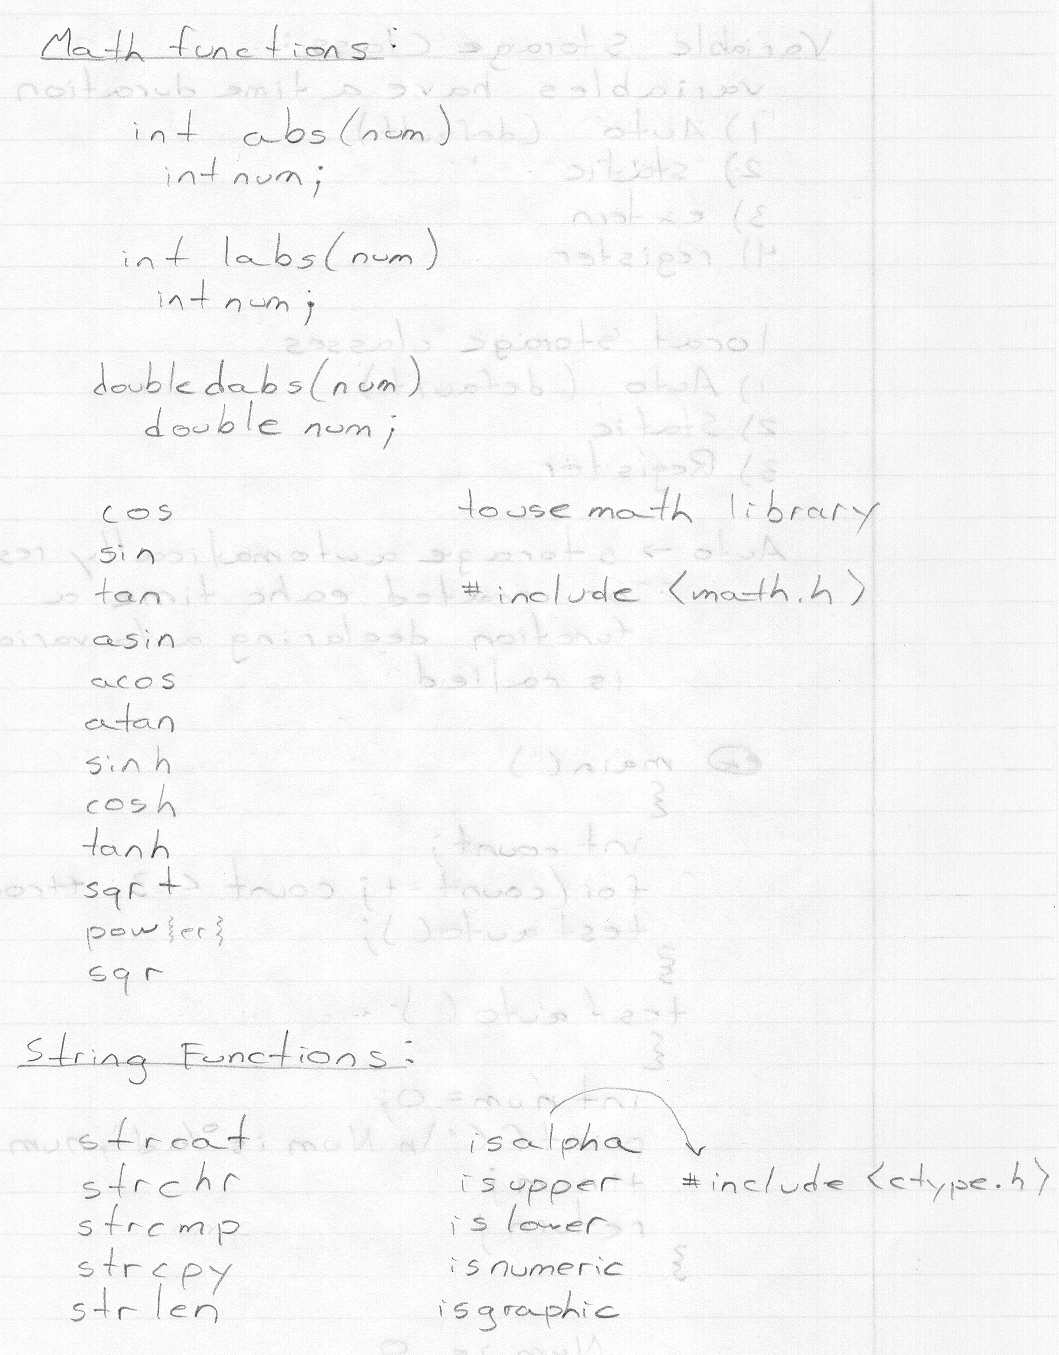 Math functions:
int abs(num)
int num;
int labs(num)
int num;
double dabs(num)
double num;
cos
to use math library
sin
tan
#include <math.h>
asin
acos
atan
sinh
cosh
tanh
sqrt
pow{er}
sqr
String Functions:
strcat
isalpha
strchr
isupper
#include <ctype.h>
strcmp
islower
strcpy
isnumeric
strlen
isgraphic